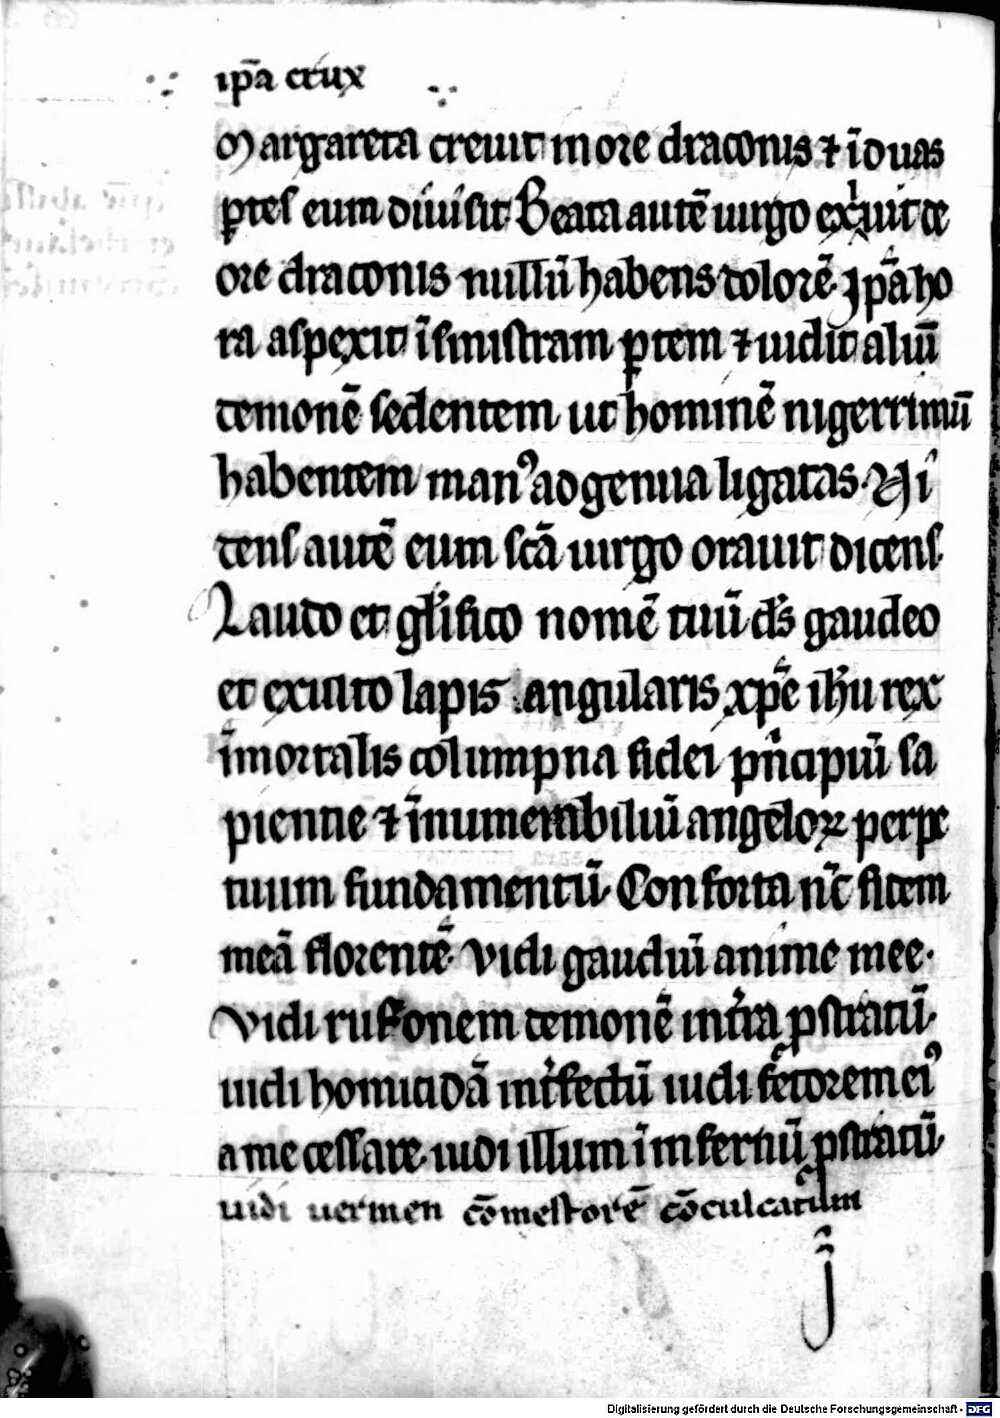 ip̄a crux
Margareta creuit in ore draconis ⁊ ī duas
ꝑtes eum diuisit Beata autē uirgo exiuit de
ore draconis nullū habens dolorē· Ip̄a ho
ra aspexit ī sinistram ꝑtem ⁊ uidit aliū
demonē sedentem ut hominē nigerrimū
habentem manꝰ ad genua ligatas· Ui
dens autē eum sc̄a uirgo orauit dicens·
Laudo et gl̄ifico nomē tuū ds̄ gaudeo
et exulto lapis angularis xp̄e ih̄u rex
īmortalis columpna fidei pⁱncipiū sa
pientie ⁊ īnumerabiliū angeloꝝ perpe
tuum fundamentū· Conforta nc̄ fidem
meā florentē· Vidi gaudiū anime mee·
Vidi ruffonem demonē in tr̄ra ꝓstratū·
uidi homicidā int̄fectū uidi fetorem eiꝰ
a me cessare· uidi illum ī infernū ꝓstratū·
uidi uermen cōmestorē cōculcatum